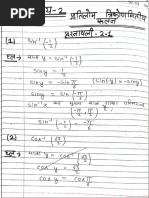 अध्याय-2
प्रतिलोम त्रिकोणमितीय
फलन
प्रश्नावली-2.1
(1) sin⁻¹(-1/2)
हल → माना y = sin⁻¹(-1/2)
siny = -1/2
siny = -sin π/6
siny = sin(-π/6)
y = -π/6
sin⁻¹(-1/2) = -π/6
(2) cos⁻¹(√3/2)
हल → माना y = cos⁻¹(√3/2)
cos y = √3/2
cos y = cos π/6